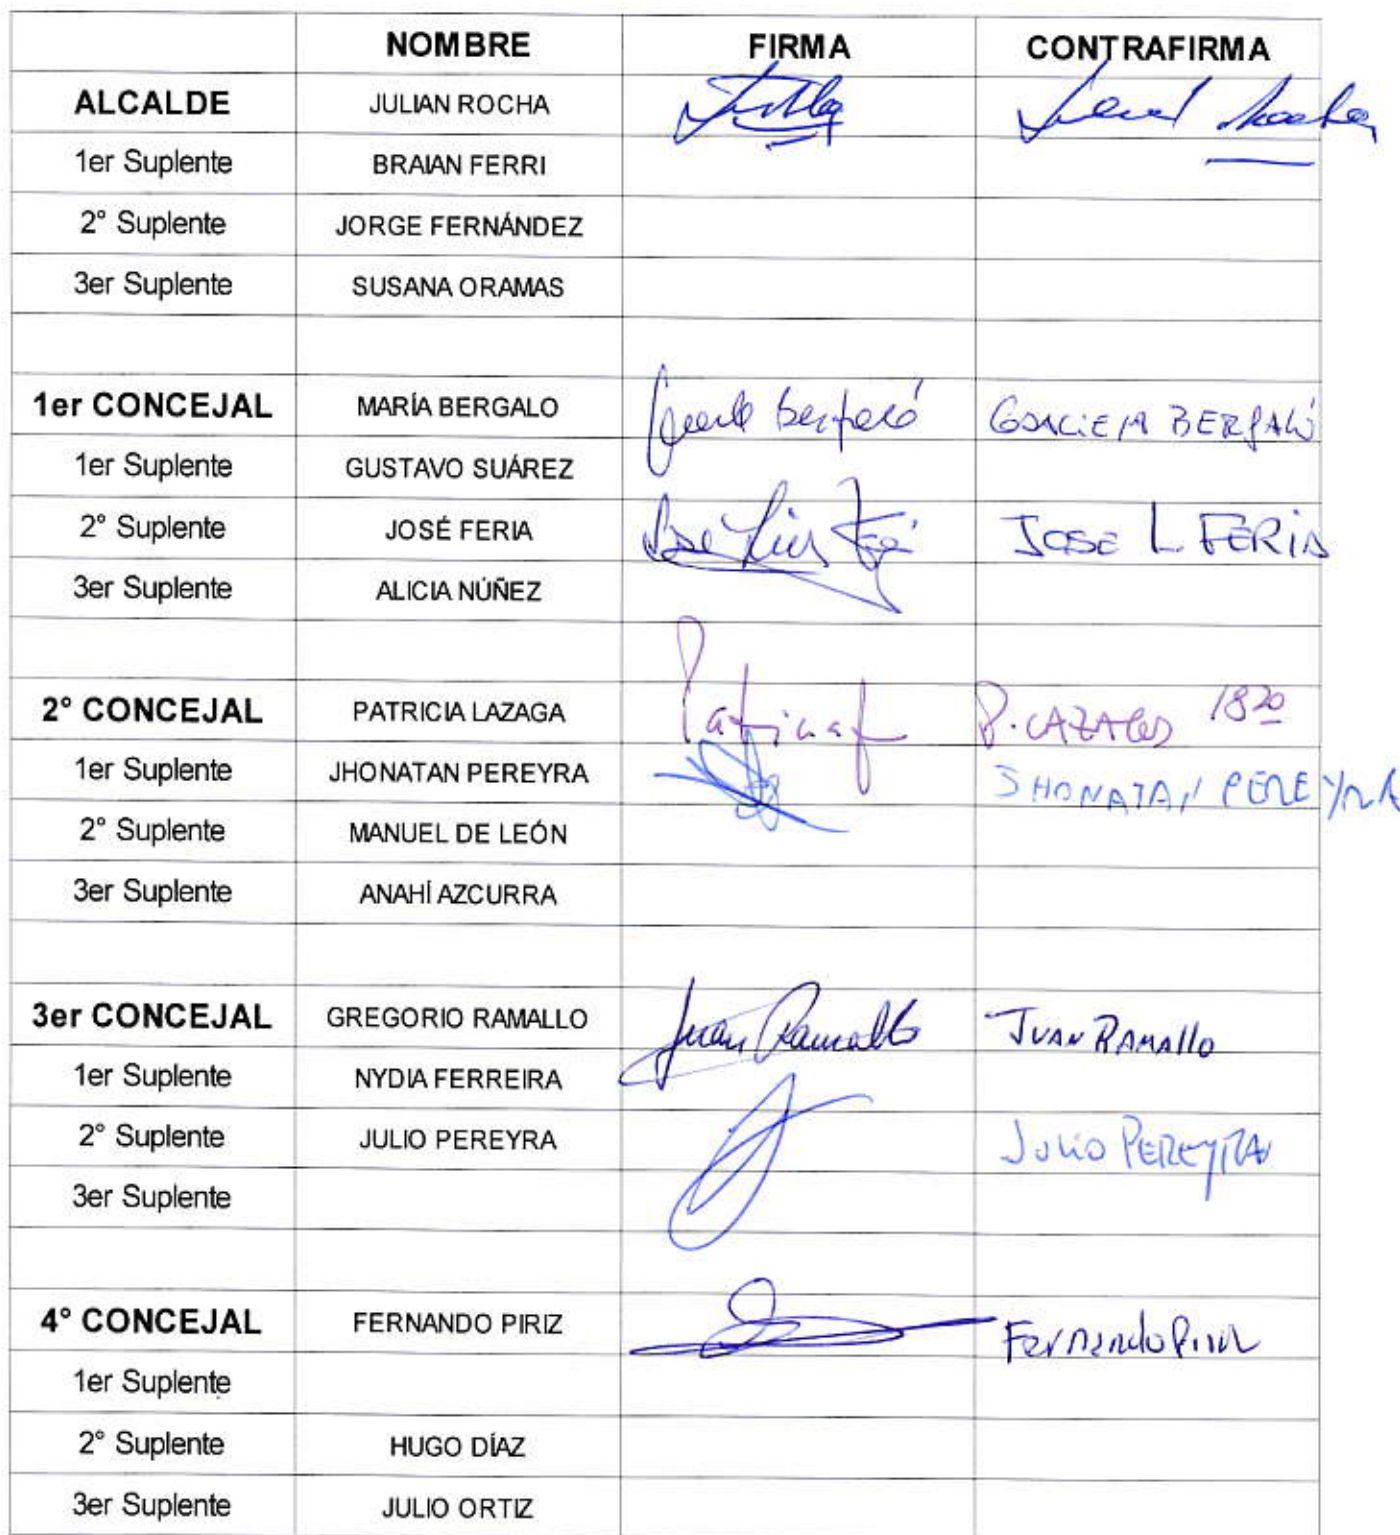 NOMBRE FIRMA CONTRAFIRMA
ALCALDE JULIAN ROCHA
1er Suplente BRAIAN FERRI
2° Suplente JORGE FERNÁNDEZ
3er Suplente SUSANA ORAMAS
1er CONCEJAL MARÍA BERGALO GRACIELA BERGALÓ
1er Suplente GUSTAVO SUÁREZ
2° Suplente JOSÉ FERIA JOSE L FERIA
3er Suplente ALICIA NÚÑEZ
2° CONCEJAL PATRICIA LAZAGA P. LAZAGA 1820
1er Suplente JHONATAN PEREYRA JHONATAN PEREYRA
2° Suplente MANUEL DE LEÓN
3er Suplente ANAHÍ AZCURRA
3er CONCEJAL GREGORIO RAMALLO Juan Ramallo JUAN RAMALLO
1er Suplente NYDIA FERREIRA
2° Suplente JULIO PEREYRA JULIO PEREYRA
3er Suplente
4° CONCEJAL FERNANDO PIRIZ Fernando Piriz
1er Suplente
2° Suplente HUGO DÍAZ
3er Suplente JULIO ORTIZ